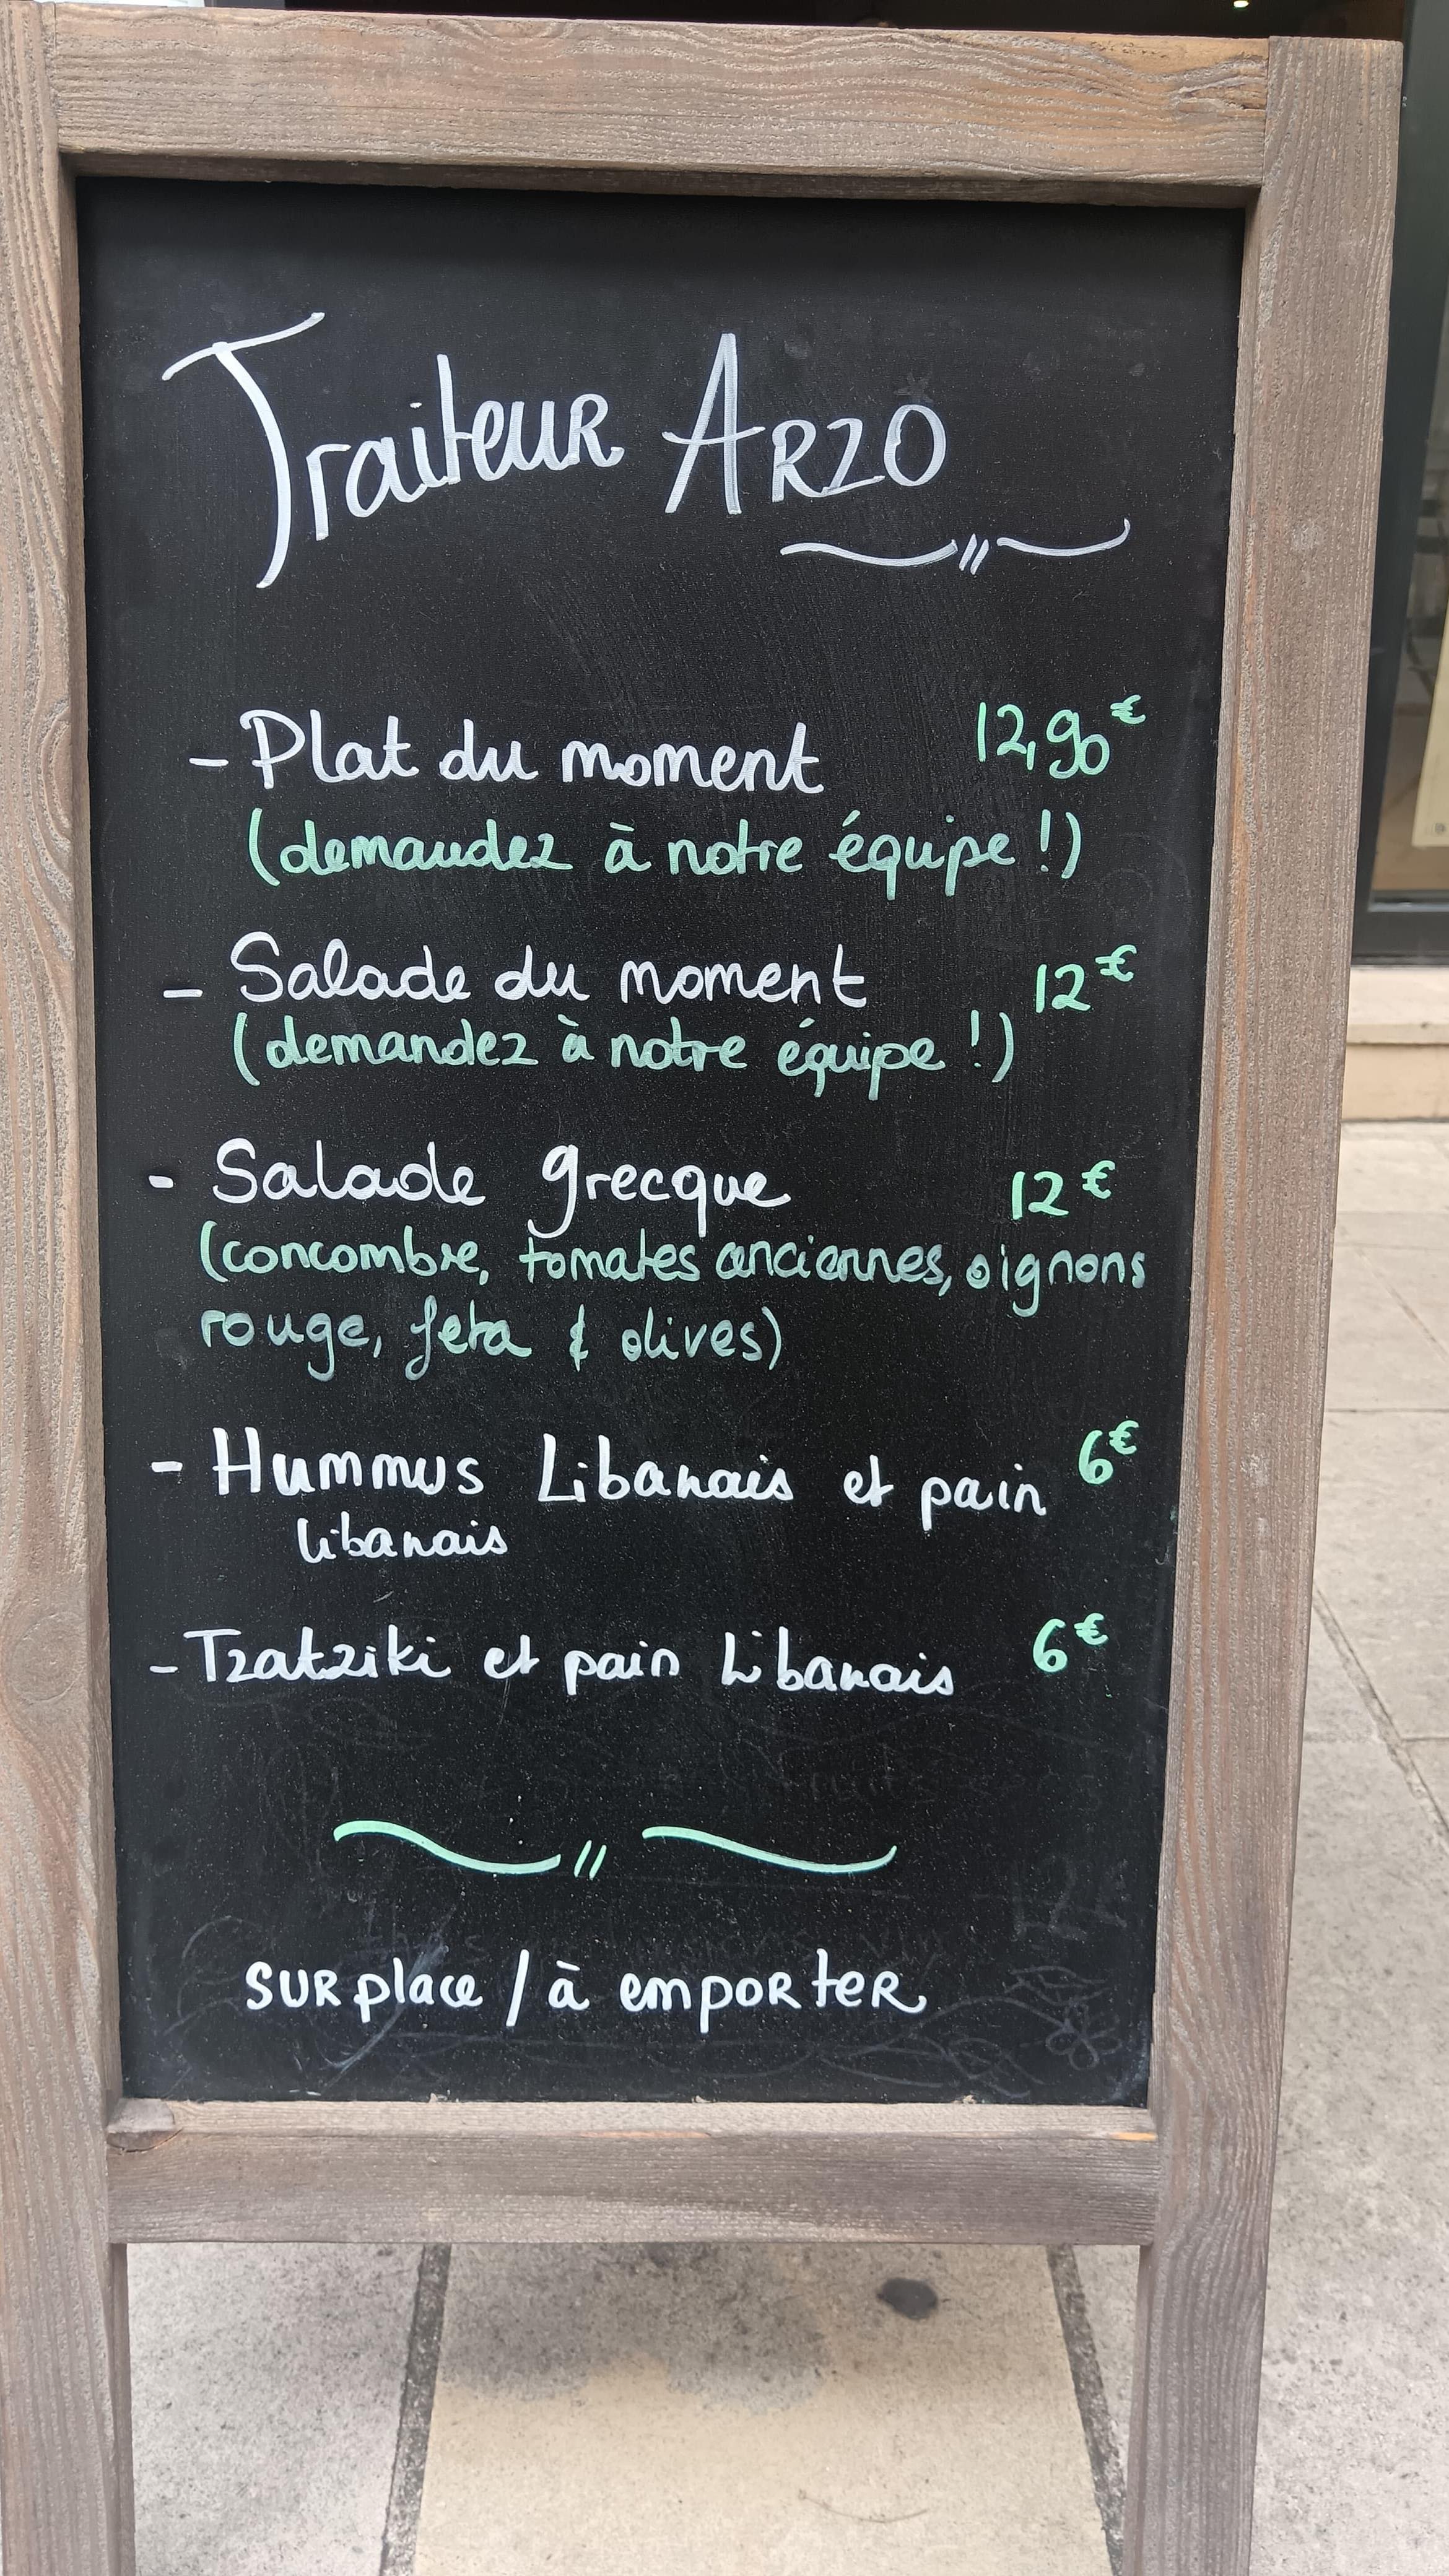 Traiteur ARZO
- Plat du moment 12,90€
(demandez à notre équipe !)
- Salade du moment 12€
(demandez à notre équipe !)
- Salade grecque 12€
(concombre, tomates anciennes, oignons
rouge, feta & olives)
- Hummus Libanais et pain 6€
libanais
- Tzatziki et pain Libanais 6€
SUR place / à emporter